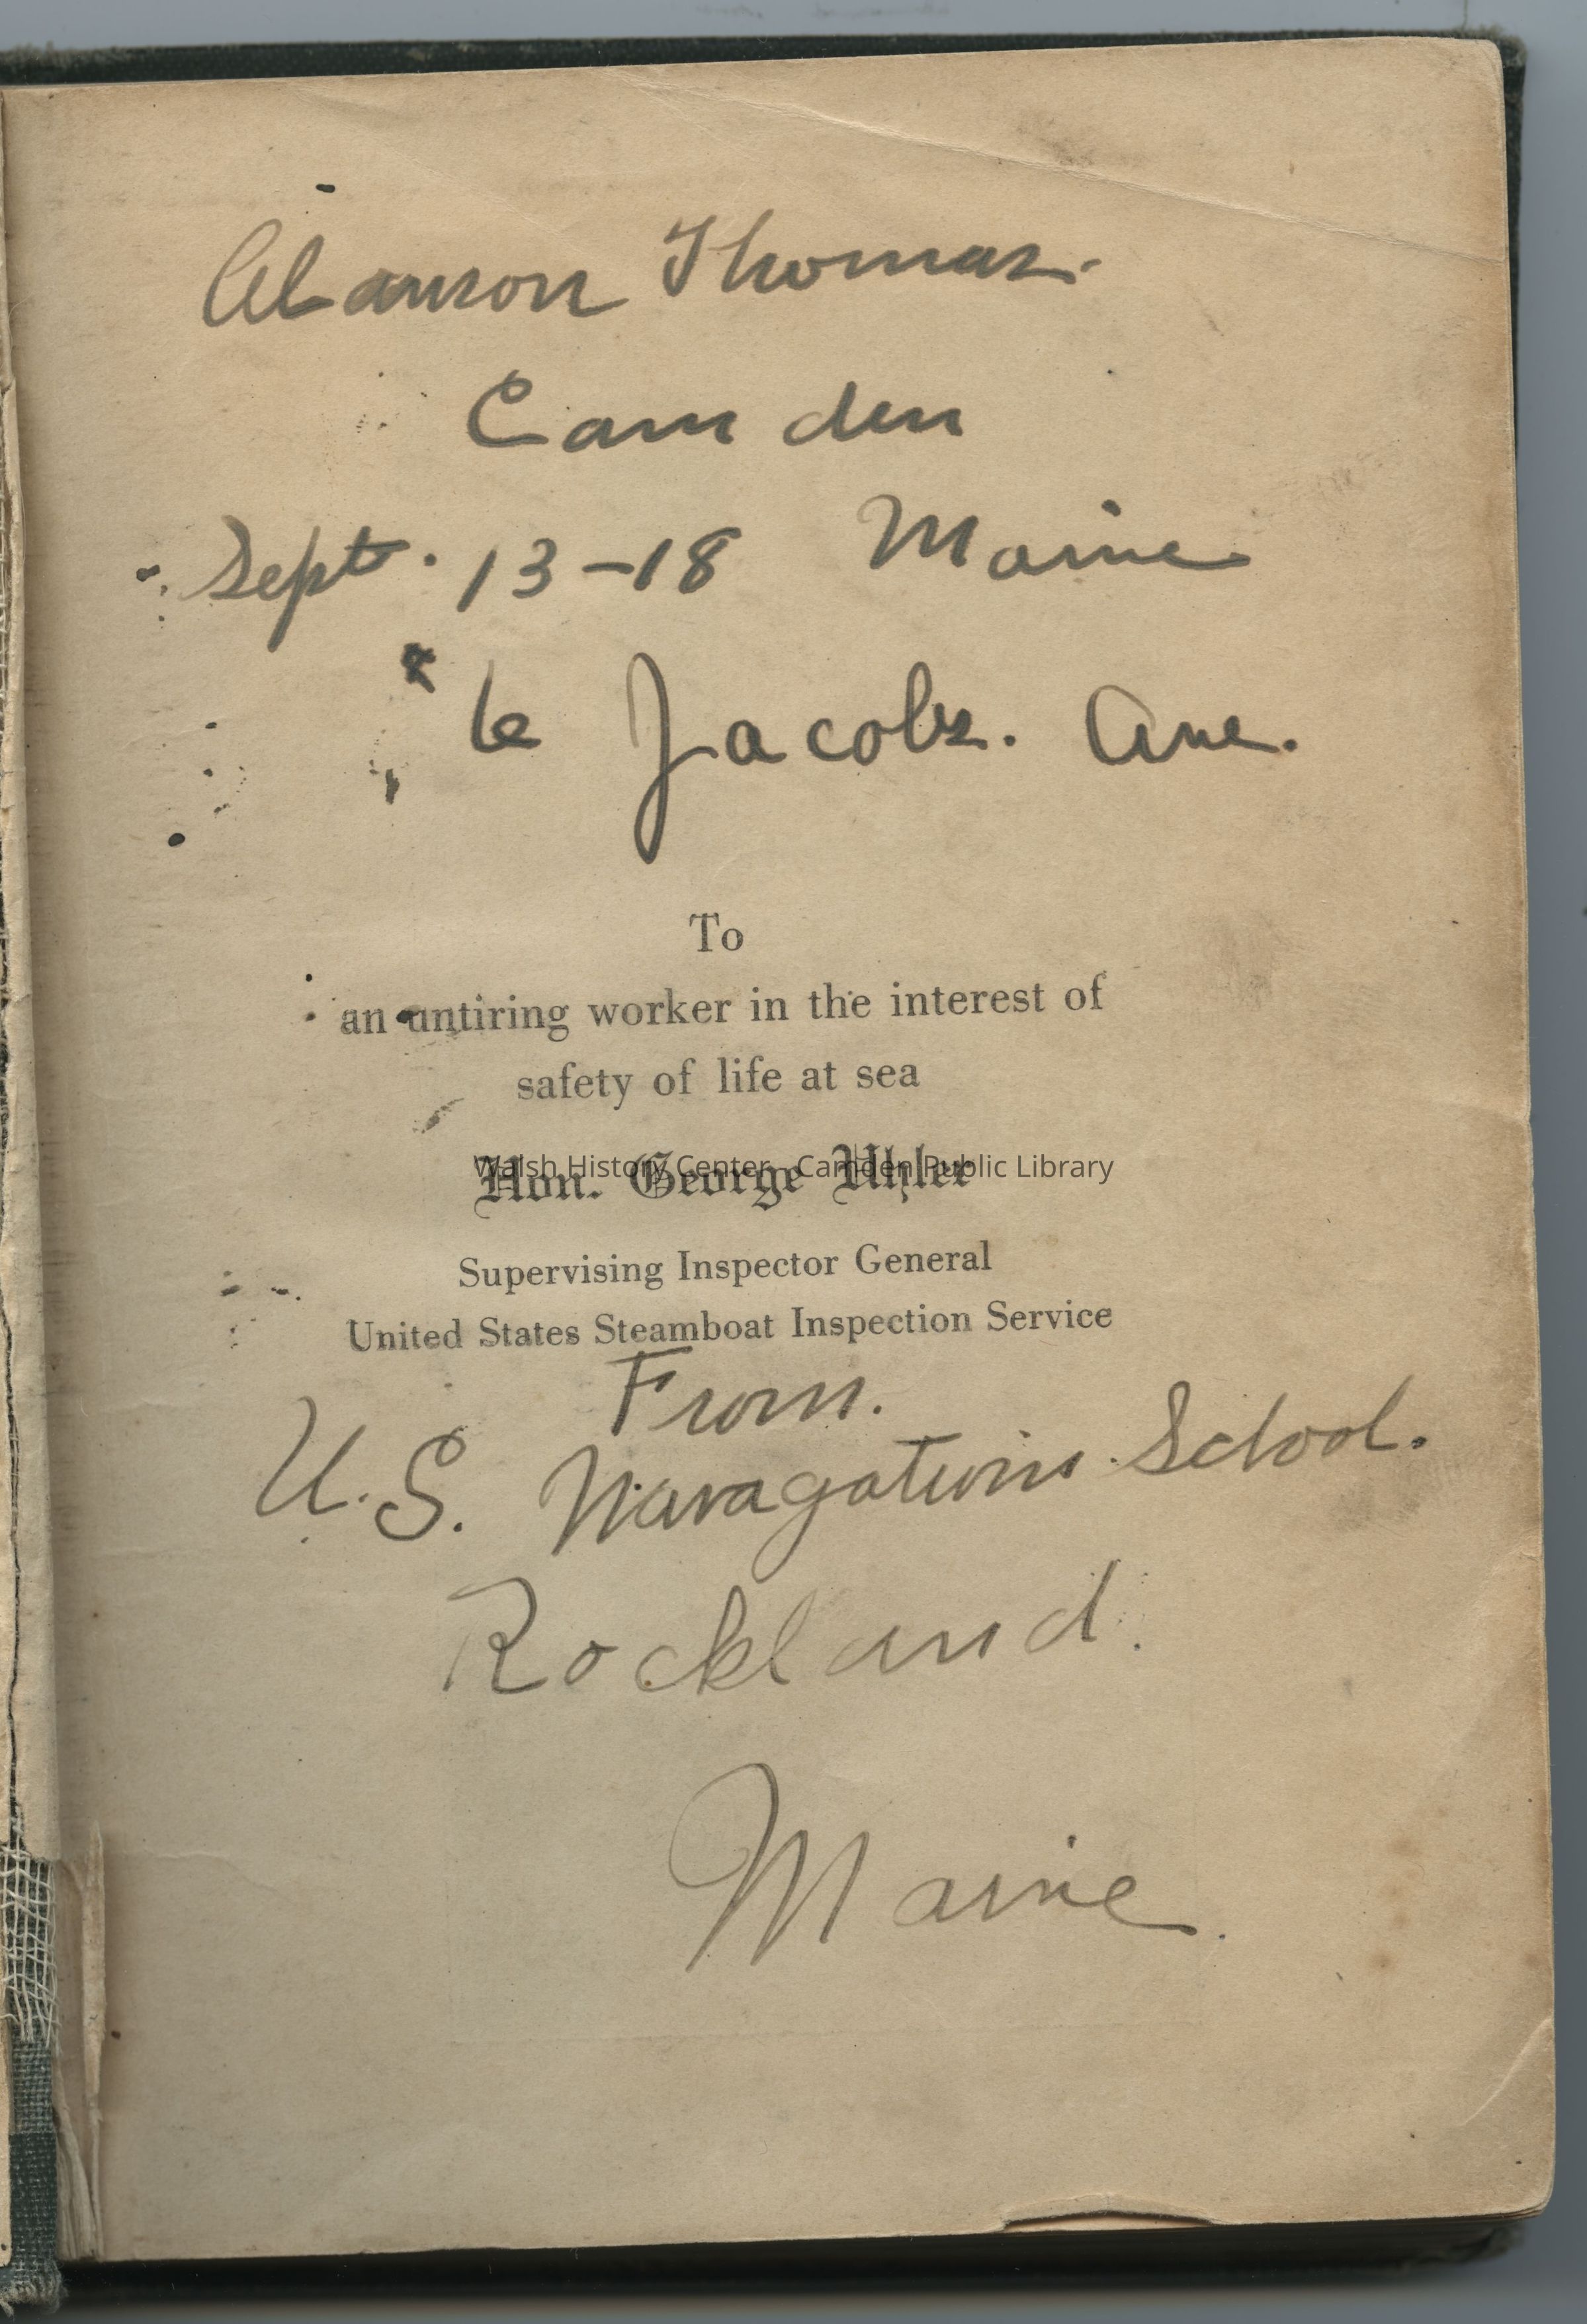 Alanson Thomas.
Camden
Sept. 13-18 Maine
6 Jacobs. Ave.
To
an untiring worker in the interest of
safety of life at sea
Walsh History Center, Camden Public Library
Hon. George Uhler
Supervising Inspector General
United States Steamboat Inspection Service
From.
U.S. Navagations School.
Rockland.
Maine.